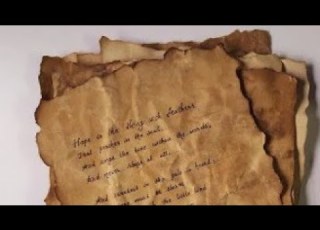 Hope is the thing with feathers
That perches in the soul,
And sings the tune without the words,
And never stops at all,
And sweetest in the gale is heard;
must be the storm
the little bird